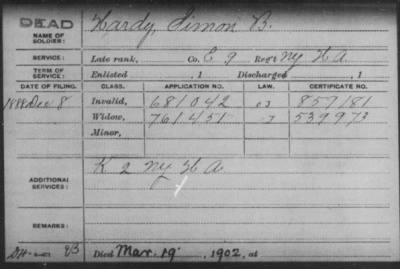 DEAD
NAME OF SOLDIER: Hardy, Simon B.
SERVICE: Late rank, Co. C 9 Reg't Ny H A.
TERM OF SERVICE: Enlisted , 1 Discharged , 1
DATE OF FILING. CLASS. APPLICATION NO. LAW. CERTIFICATE NO.
1888 Dec 8 Invalid, 681042 857181
Widow, 761451 539973
Minor,
ADDITIONAL SERVICES: K 2 Ny H A
REMARKS:
Died Mar. 19 , 1902, at